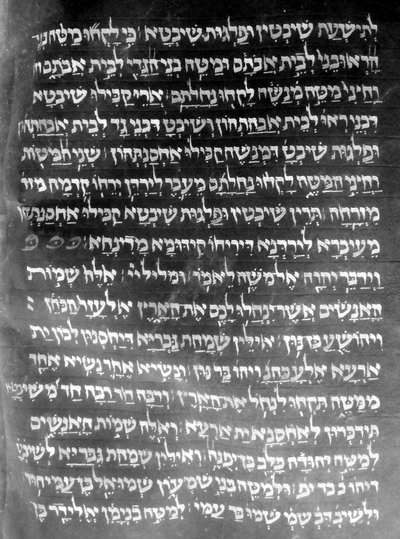 לתשעת שיבטין ופלגות שיבטא׃ כי לקחו מטה בני
הראובני לבית אבתם ומטה בני הגדי לבית אבתם
וחצי מטה מנשה לקחו נחלתם׃ ארי קבילו שיבטא
דבני ראו לבית אבהתהון ושיבט דבני גד לבית אבהתהון
ופלגות שיבט דמנשה קבילו אחסנתהון׃ שני המטות
וחצי המטה לקחו נחלתם מעבר לירדן ירחו קדמה מזר
מזרחה׃ תרין שיבטין ופלגות שיבטא קבילו אחסנתהון
מעיברא לירדנא דיריחו קידומא מדינחא׃ פ פ פ
וידבר יהוה אל משה לאמר׃ ומליל ייי׃ אלה שמות
האנשים אשר ינחלו לכם את הארץ אלעזר הכהן
ויהושע בן נון׃ אילין שמהת גבריא דיחסנון לכון ית
ארעא אלע כהנ ויהו בר נון׃ ונשיא אחד נשיא אחד
ממטה תקחו לנחל את הארץ׃ ורבה חד רבה חד משיבטא
תידברון לאחסנא ית ארעא׃ ואלה שמות האנשים
למטה יהודה כלב בן יפנה׃ ואילין שמהת גבריא לשיבט
דיהו כל בר יפ׃ ולמטה בני שמעון שמואל בן עמיהוד
ולשיב דב שמ שמו בר עמי׃ למטה בנימן אלידד בן